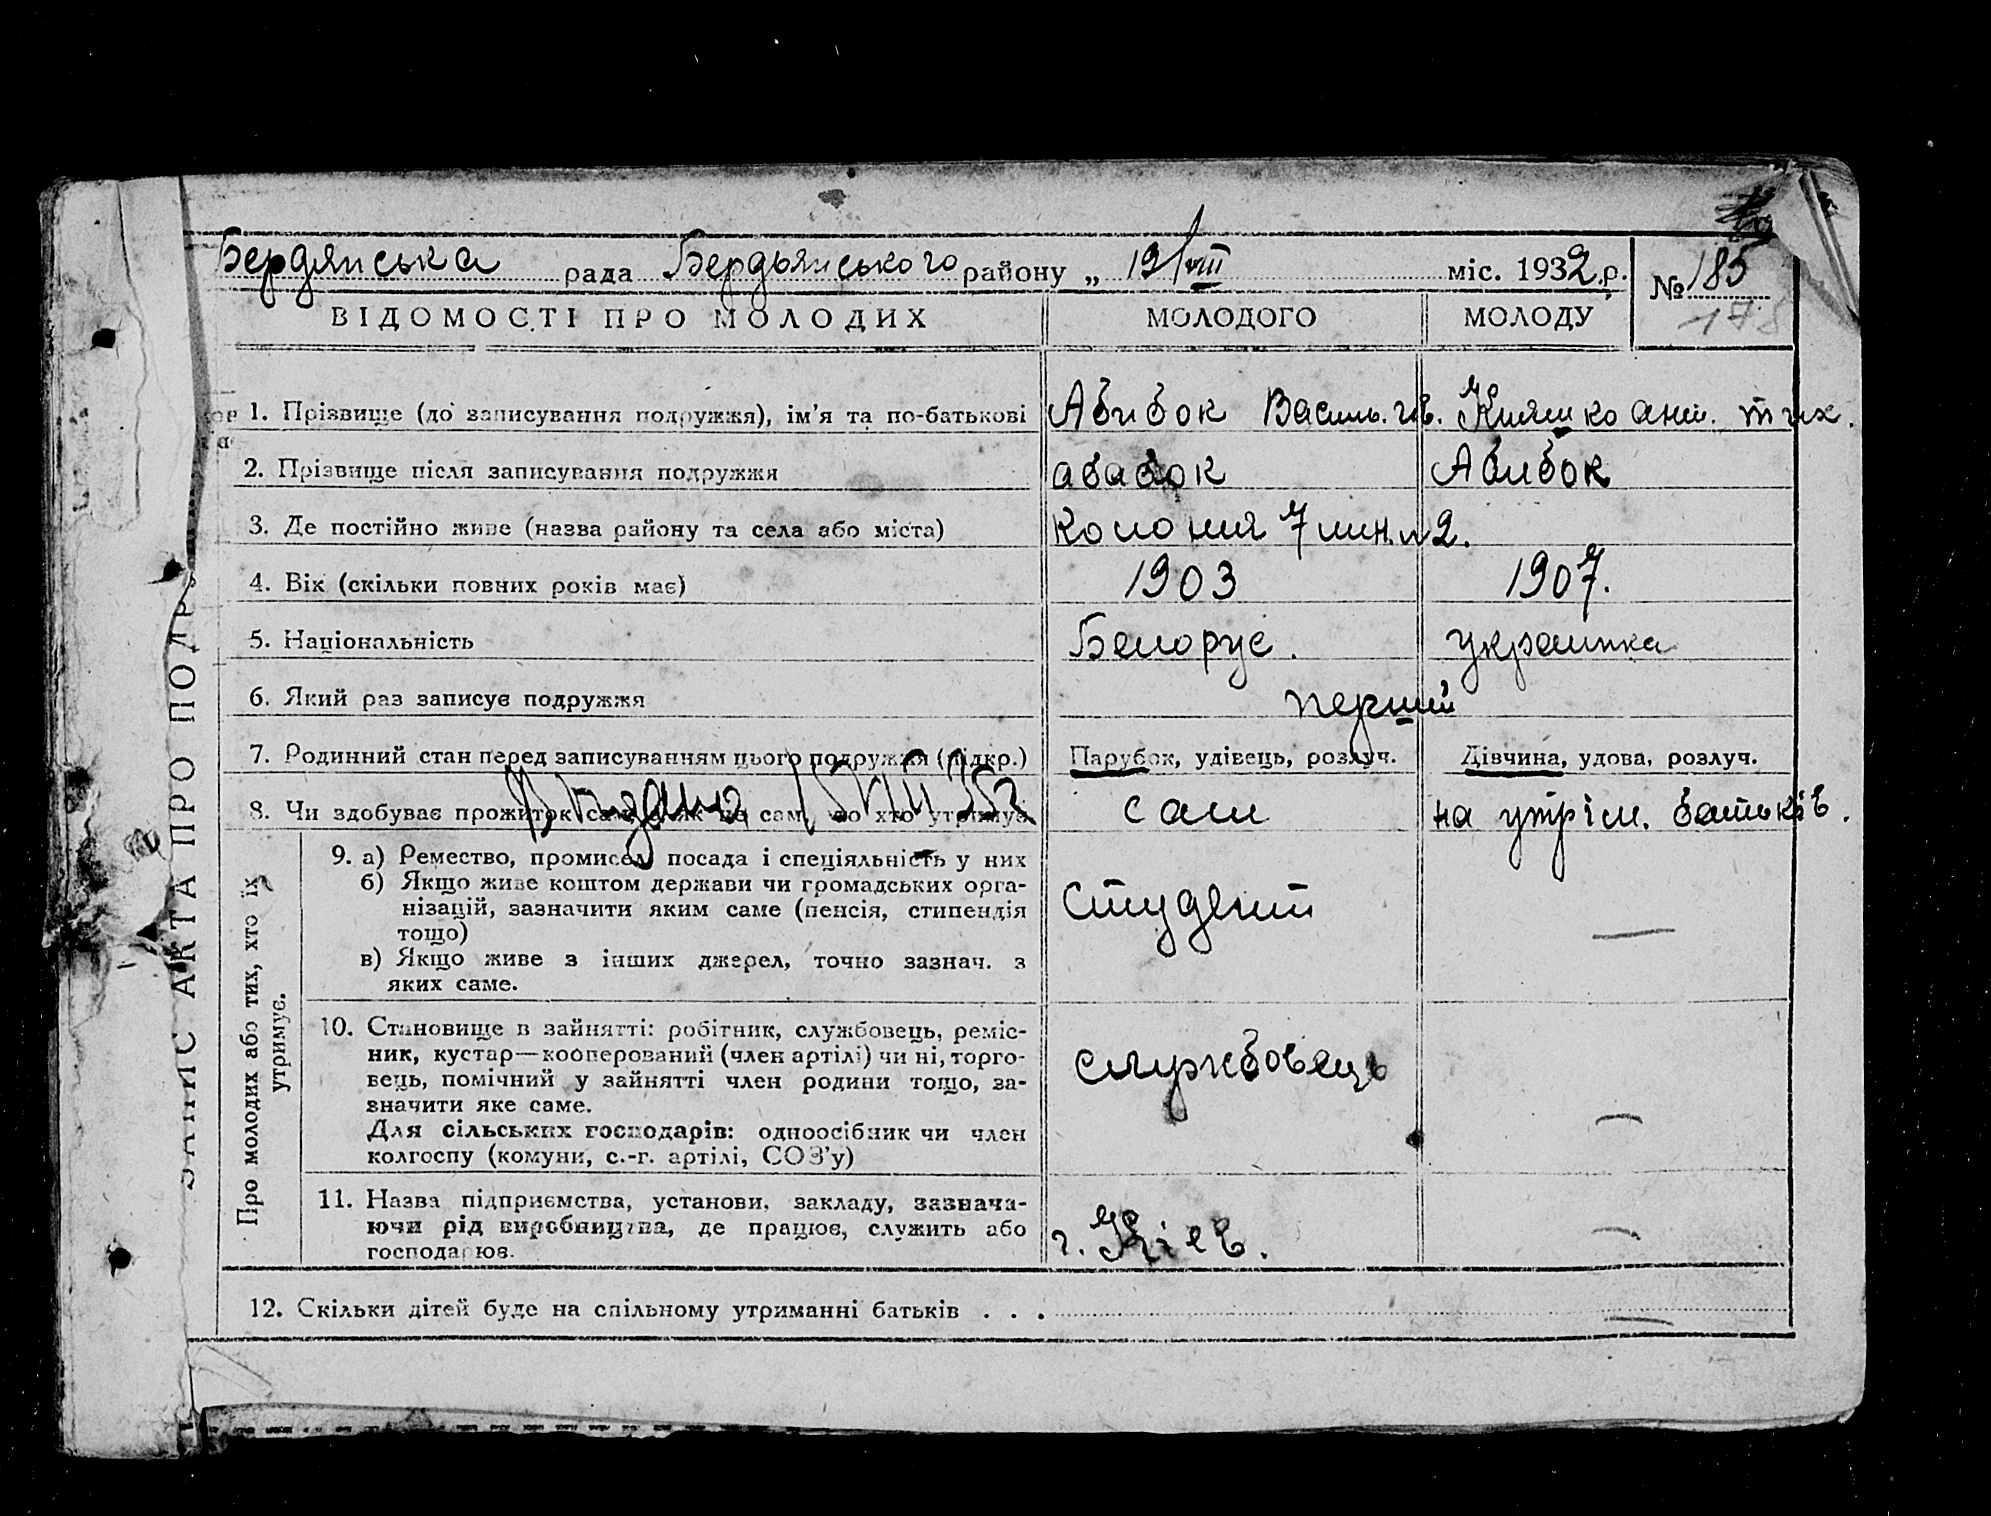 Бердянська рада Бердьянського району „ 19/VIII міс. 1932 р.
№ 185
178
ВІДОМОСТІ ПРО МОЛОДИХ МОЛОДОГО МОЛОДУ
1. Прізвище (до записування подружжя), ім'я та по-батькові Абибок Василь. Ів. Кияшко Ант. Тих.
2. Прізвище після записування подружжя Абабок Абибок
3. Де постійно живе (назва району та села або міста) Колония 7 лин. №2.
4. Вік (скільки повних років має) 1903 1907.
5. Національність Белорус. Украинка
6. Який раз записує подружжя перший
7. Родинний стан перед записуванням цього подружжя (підкр.) Парубок, удівець, розлуч. Дівчина, удова, розлуч.
8. Чи здобуває прожиток сам, а як не сам, то хто утримує сам на утрім. батьків.
Про молодих або тих, хто їх
утримує.
9. а) Ремество, промисел, посада і спеціяльність у них
б) Якщо живе коштом держави чи громадських орга-
нізацій, зазначити яким саме (пенсія, стипендія
тощо)
в) Якщо живе з інших джерел, точно зазнач. з
яких саме.
Студент —
10. Становище в зайнятті: робітник, службовець, реміс-
ник, кустар—кооперований (член артілі) чи ні, торго-
вець, помічний у зайнятті член родини тощо, за-
значити яке саме.
Для сільських господарів: одноосібник чи член
колгоспу (комуни, с.-г. артілі, СОЗ'у)
службовець —
11. Назва підприємства, установи, закладу, зазнача-
ючи рід виробництва, де працює, служить або
господарює.
г. Кіев. —
12. Скільки дітей буде на спільному утриманні батьків . . . —
ЗАПИС АКТА ПРО ПОДР